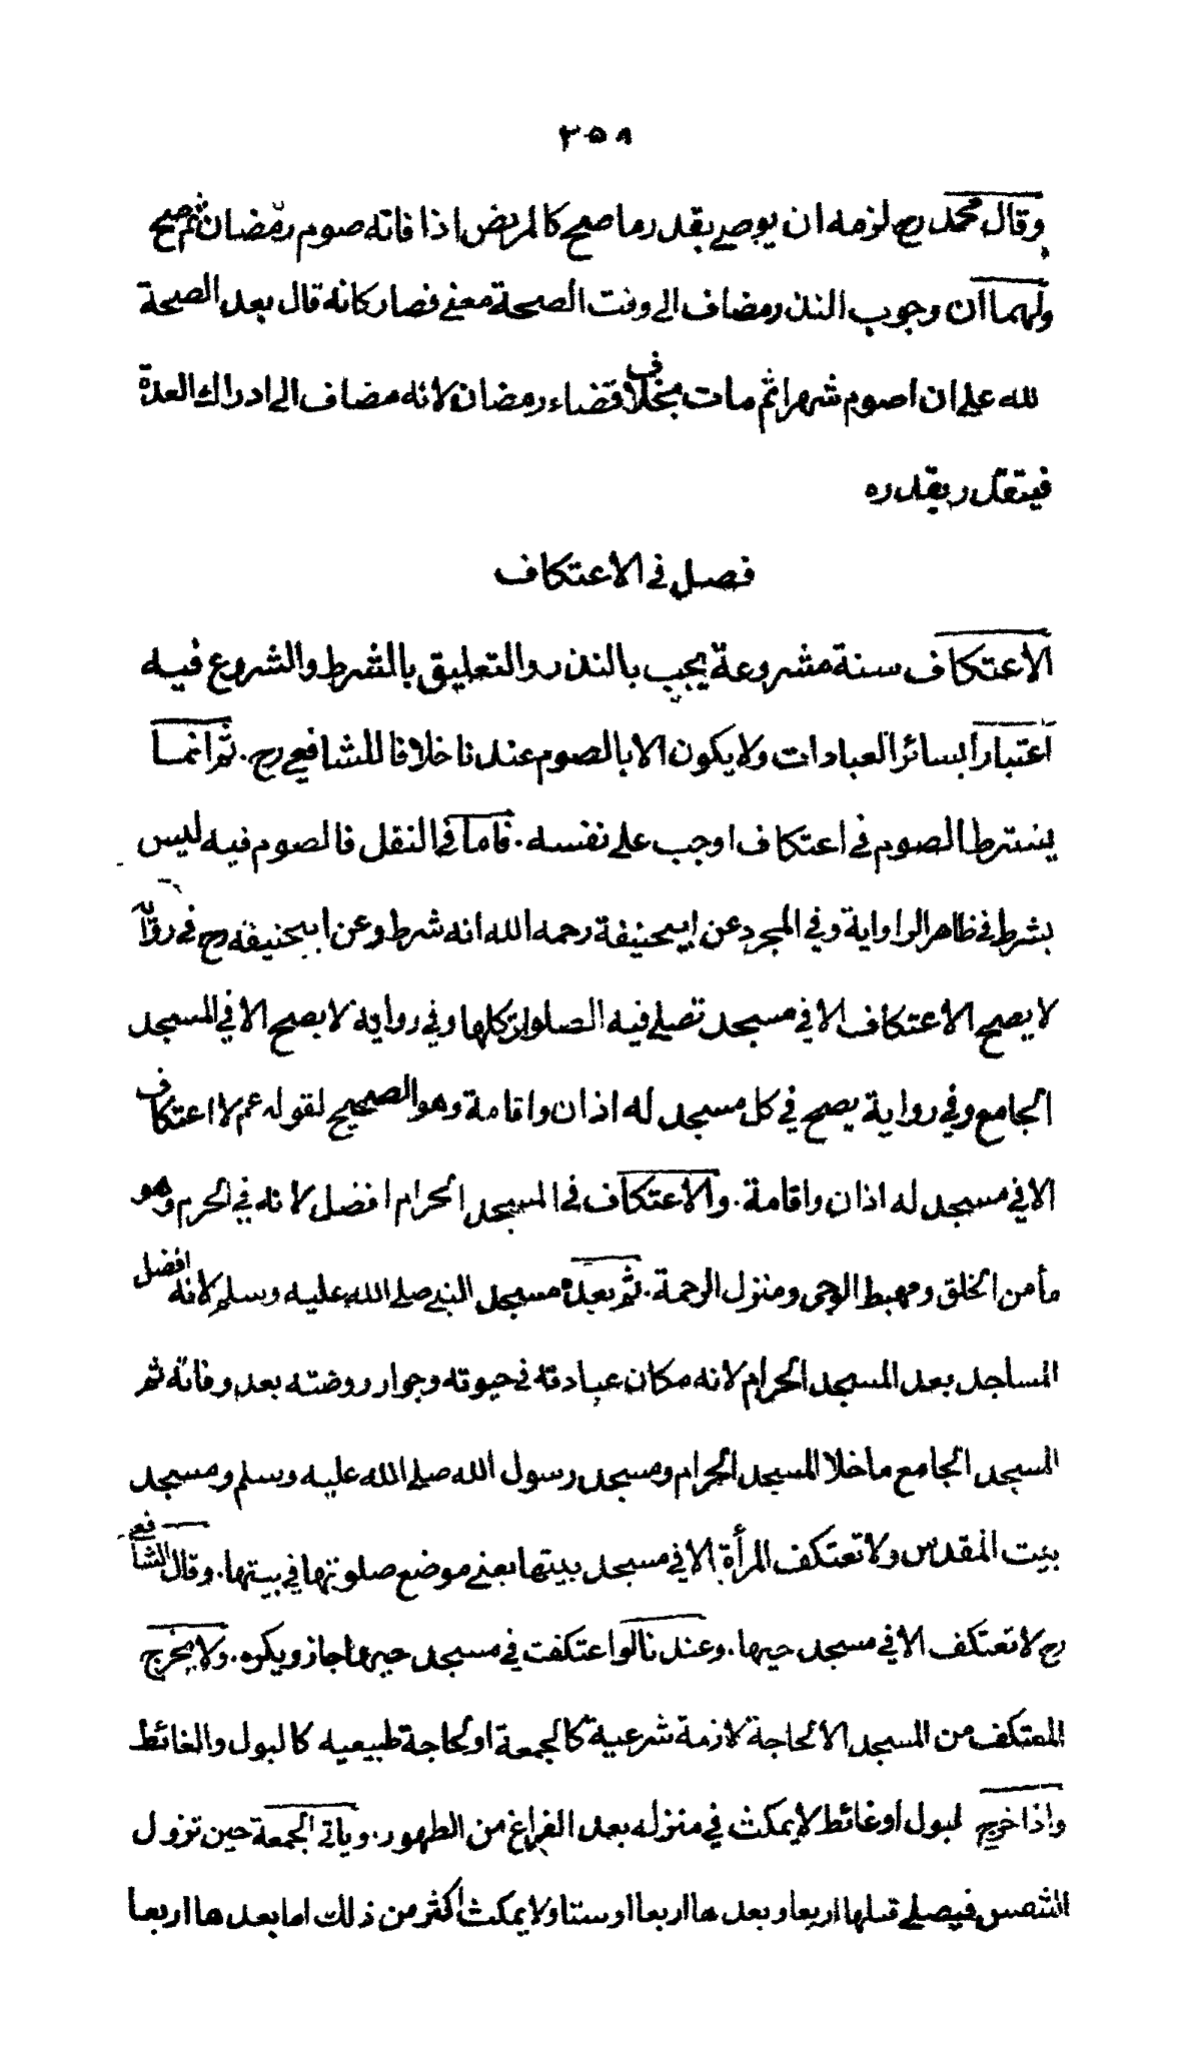 ٣٥٨
وقال محمد رح لزمه ان يوصي بقدر ما صح كالمريض اذا فاته صوم رمضان ثم صح
ولهما ان وجوب النذر مضاف الى وقت الصحة معنى فصار كانه قال بعد الصحة
لله علي ان اصوم شهرا ثم مات بخلاف قضاء رمضان لانه مضاف الى ادراك العدة
فيتقدر بقدره
فصل في الاعتكاف
الاعتكاف سنة مشروعة يجب بالنذر والتعليق بالشرط والشروع فيه
اعتبارا بسائر العبادات ولا يكون الا بالصوم عندنا خلافا للشافعي رح. ثم انما
يشترط الصوم في اعتكاف اوجب على نفسه. فاما في النفل فالصوم فيه ليس
بشرط في ظاهر الراواية وفي المجرد عن ابيحنيفة رحمه الله انه شرط وعن ابيحنيفه رح في رواية
لا يصح الاعتكاف الا في مسجد تصلي فيه الصلوات كلها وفي رواية لا يصح الا في المسجد
الجامع وفي رواية يصح في كل مسجد له اذان واقامة وهو الصحيح لقوله عم لا اعتكاف
الا في مسجد له اذان واقامة. والاعتكاف في المسجد الحرام افضل لانه في الحرم وهو
مأمن الخلق ومهبط الوحى ومنزل الرحمة. ثم بعده مسجد النبي صلى الله عليه وسلم لانه افضل
المساجد بعد المسجد الحرام لانه مكان عبادته في حيوته وجوار روضته بعد وفاته ثم
المسجد الجامع ما خلا المسجد الحرام ومسجد رسول الله صلى الله عليه وسلم ومسجد
بيت المقدس ولا تعتكف المرأة الا في مسجد بيتها يعني موضع صلوتها في بيتها. وقال الشافعي
رح لا تعتكف الا في مسجد حيها. وعندنا لو اعتكفت في مسجد حيها جاز ويكره. ولا يخرج
المعتكف من المسجد الا لحاجة لازمة شرعية كالجمعة او لحاجة طبيعيه كالبول والغائط
واذا خرج لبول او غائط لا يمكث في منزله بعد الفراغ من الطهور. ويأتي الجمعة حين تزول
الشمس فيصلي قبلها اربعا وبعدها اربعا او ستا ولا يمكث اكثر من ذلك اما بعدها اربعا